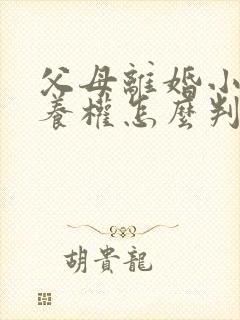 父母離婚小
養權怎麼判
胡貴龍